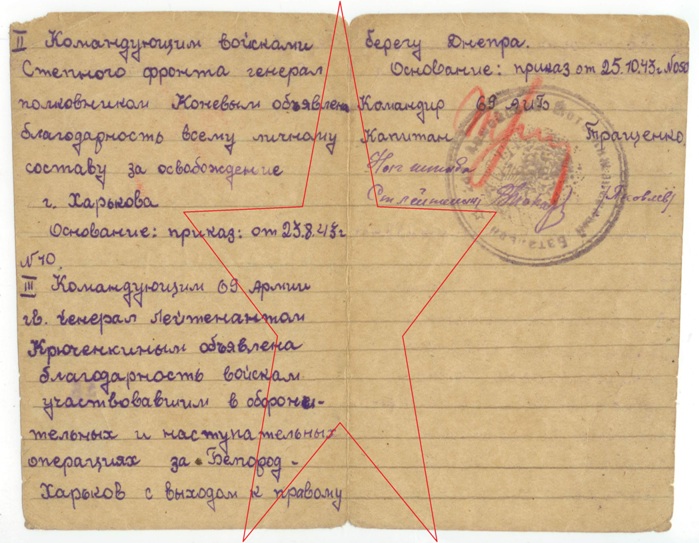 II Командующим войсками
Степного фронта генерал
полковником Коневым объявлен
благодарность всему личному
составу за освабождение
г. Харькова
Основание: приказ: от 23.8.43г
№ 10
III Командующим 69 Армии
гв. генерал Лейтенантом
Крюченкиным объявлена
благодарность войскам
участвовавшим в оборони-
тельных и наступательных
операциях за Белгород-
Харьков с выходом к правому
берегу Днепра.
Основание: приказ от 25.10.43г. №050
Командир 69
Капитан Тращенко
Нач штаба
Ст лейтенант Яковлев
Батальон